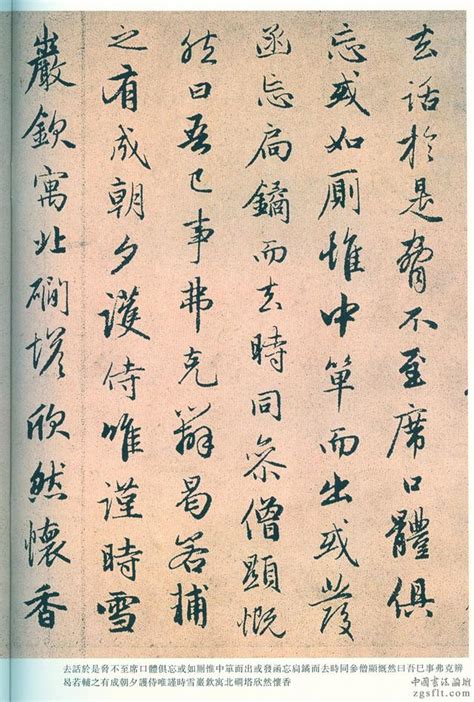 去話於是脅不至席口體俱
忘或如厠惟中單而出或發
函忘扃鐍而去時同參僧顯慨
然曰吾已事弗克辦曷若輔
之有成朝夕護侍唯謹時雪
巖欽寓北磵塔欣然懷香
去話於是脅不至席口體俱忘或如厠惟中單而出或發函忘扃鐍而去時同參僧顯慨然曰吾已事弗克辨
曷若輔之有成朝夕護侍唯謹時雪巖欽寓北磵塔欣然懷香
中國書法論壇
zgsflt.com